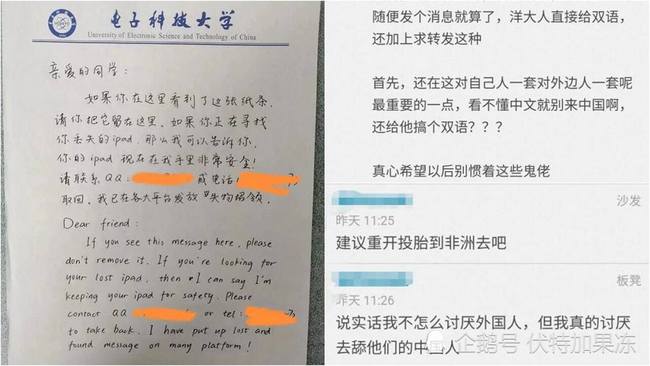 电子科技大学
University of Electronic Science and Technology of China
亲爱的同学:
如果你在这里看到了这张纸条,
请你把它留在这里。如果你正在寻找
你丢失的ipad,那么我可以告诉你,
你的ipad现在在我手里非常安全!
请联系QQ: 或电话:
取回,我已在各大平台发放"失物招领。
Dear friend:
If you see this message here, please
don't remove it. If you're looking for
your lost ipad, then I can say I'm
keeping your ipad for safety. Please
contact QQ or tel:
to take back. I have put up lost and
found message on many platform!
随便发个消息就算了,洋大人直接给双语,
还加上求转发这种
首先,还在这对自己人一套对外边人一套呢
最重要的一点,看不懂中文就别来中国啊,
还给他搞个双语???
真心希望以后别惯着这些鬼佬
沙发
昨天 11:25
建议重开投胎到非洲去吧
板凳
昨天 11:26
说实话我不怎么讨厌外国人,但我真的讨厌
去舔他们的中人
企鹅号 伏特加果冻